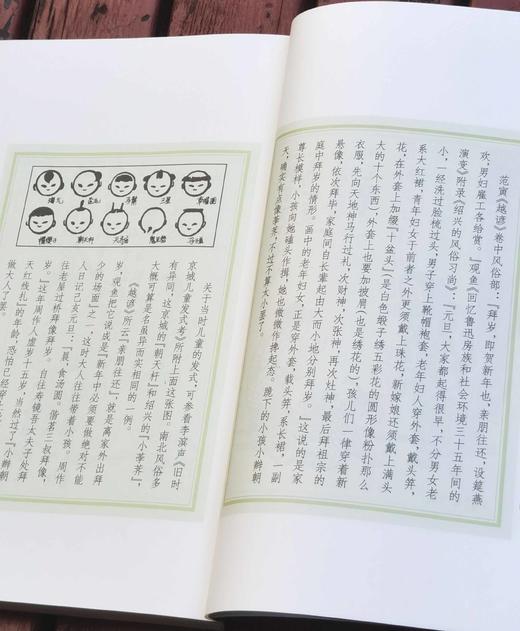 范寅《越谚》卷中风俗部:『拜岁,即贺新年也,亲朋往还,设筵燕
欢,男妇雇工各给赏。』观鱼《回忆鲁迅房族和社会环境三十五年间的
演变》附录《绍兴的风俗习尚》:『元旦,大家都起得很早,不分男女老
小,一经洗过脸梳过头,男子穿上靴帽袍套,老年妇人穿外套、戴头笄,
系大红裙,青年妇女于前者之外更须戴上珠花,新嫁娘还须戴上满头
花,在外套上加缀『十盆头』(是白色缎子绣五彩花的圆形像粉扑那么
大的十个东西)外套上也要加坡肩(也是绣花的),孩儿们一律穿着新
衣服,先向天地神马行过礼,次财神,次张神,再次灶神,最后拜祖宗的
悬像,依次拜毕,家庭间自长辈起由大而小地分别拜岁。』这说的是家
庭中拜岁的情形。画中的老年妇女,正是穿外套,载头笄,系长裙,一副
尊长模样,小孩向她磕头作揖,她也微微作搀起态。跪下的小孩小辫朝
天,确实有点像荸荠,不过不算太小至了。
三星
朝天杵
关于当时儿童的发式,可参看李滨声《旧时
京城儿童发式考》所附上面这张图。南北风俗多
有异同,这京城的『朝天杵』和绍兴的『小荸荠』,
大概可算是名虽异而实相同的一例。
《越谚》所云『亲朋往还』,就是离家外出拜
岁,观鱼把它说成是『新年中必须要做绝对不能
少的场面』之一,这时大人往往带着小孩。周作
人日记己亥元旦:『晨,食汤圆。偕茗三叔拜像,
往老屋过桥拜像拜岁。自往寿镜吾太夫子处拜
岁。』这年周作人虚岁十五岁,当然过了『小辫朝
天红线扎』的年龄,恐怕已经穿
做大人了罢。